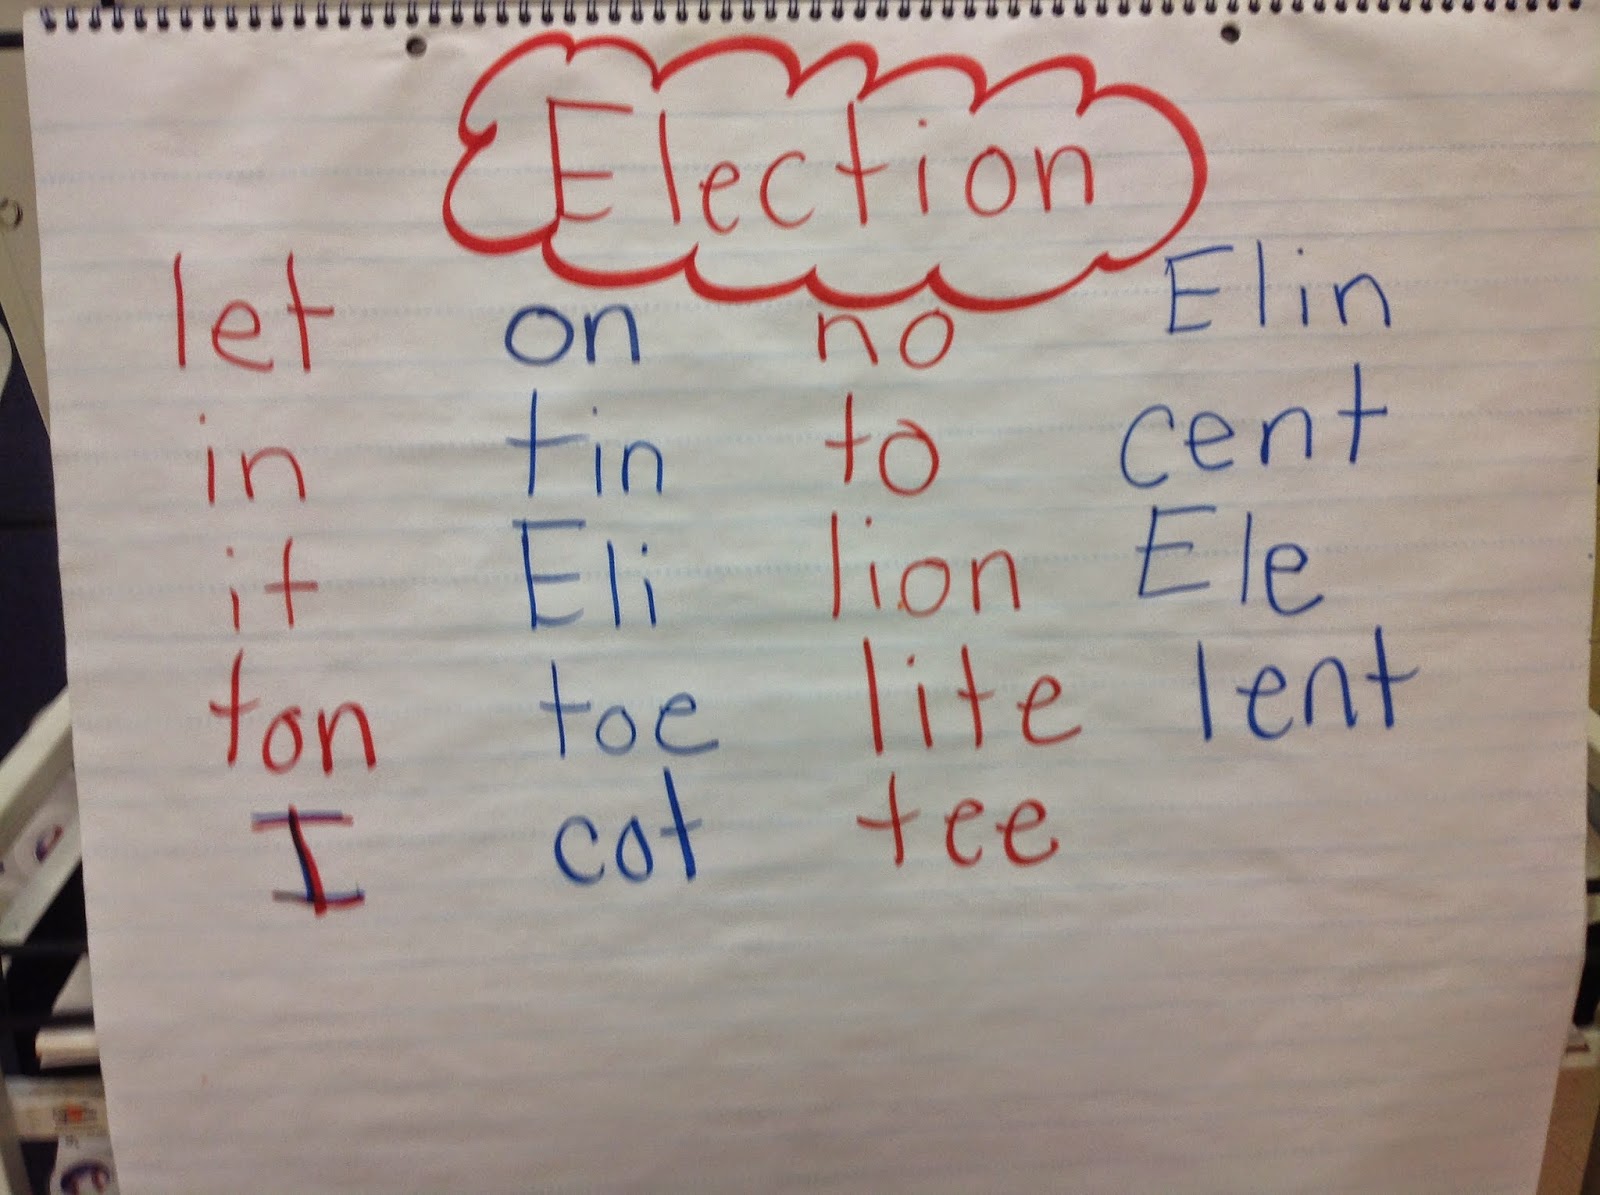 Election
let on no Elin
in tin to cent
it Eli lion Ele
ton toe lite lent
I cot tee